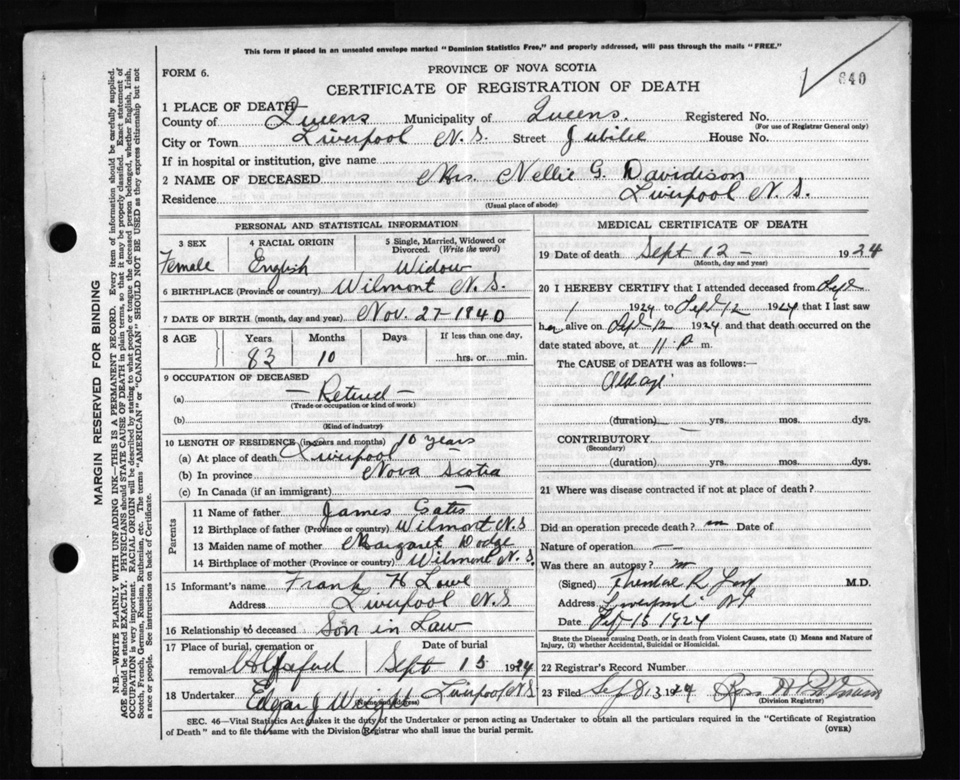 This form if placed in an unsealed envelope marked "Dominion Statistics Free," and properly addressed, will pass through the mails "FREE."
FORM 6.
PROVINCE OF NOVA SCOTIA
640
CERTIFICATE OF REGISTRATION OF DEATH
1 PLACE OF DEATH
County of Queens Municipality of Queens. Registered No.
(For use of Registrar General only)
City or Town Liverpool N.S. Street Jubilee House No.
If in hospital or institution, give name
2 NAME OF DECEASED Mrs. Nellie G. Davidison
Residence Liverpool N.S.
(Usual place of abode)
PERSONAL AND STATISTICAL INFORMATION
3 SEX Female
4 RACIAL ORIGIN English
5 Single, Married, Widowed or Divorced. (Write the word) Widow
6 BIRTHPLACE (Province or country) Wilmont N.S.
7 DATE OF BIRTH (month, day and year) Nov. 27-1840
8 AGE Years Months Days If less than one day,
83 10 hrs. or min.
9 OCCUPATION OF DECEASED
(a) — Retired —
(Trade or occupation or kind of work)
(b)
(Kind of industry)
10 LENGTH OF RESIDENCE (in years and months) 10 years
(a) At place of death Liverpool
(b) In province Nova Scotia
(c) In Canada (if an immigrant)
Parents
11 Name of father James Gates
12 Birthplace of father (Province or country) Wilmont N.S
13 Maiden name of mother Margaret Dodge
14 Birthplace of mother (Province or country) Wilmont N.S.
15 Informant's name Frank H Lowe
Address Liverpool N.S
16 Relationship to deceased Son in Law
17 Place of burial, cremation or removal
Date of burial Sept 15 1924
18 Undertaker Edgar J Wright Liverpool N.S
(Name and address)
MEDICAL CERTIFICATE OF DEATH
19 Date of death Sept 12 - 1924
(Month, day and year)
20 I HEREBY CERTIFY that I attended deceased from Sept
1 1924 to Sept 12 1924 that I last saw
her alive on Sept 12 1924 and that death occurred on
date stated above, at 11 P m.
The CAUSE of DEATH was as follows:—
Old age
(duration) yrs. mos. dys.
CONTRIBUTORY
(Secondary)
(duration) yrs. mos. dys.
21 Where was disease contracted if not at place of death?
Did an operation precede death? no Date of
Nature of operation —
Was there an autopsy? no
(Signed) R M.D.
Address Liverpool NS
Date 1924
State the Disease causing Death, or in death from Violent Causes, state (1) Means and Nature of Injury, (2) whether Accidental, Suicidal or Homicidal.
22 Registrar's Record Number
23 Filed Sept 13 1924
(Division Registrar)
SEC. 46—Vital Statistics Act makes it the duty of the Undertaker or person acting as Undertaker to obtain all the particulars required in the "Certificate of Registration
of Death" and to file the same with the Division Registrar who shall issue the burial permit.
(OVER)
MARGIN RESERVED FOR BINDING
N.B.—WRITE PLAINLY WITH UNFADING INK—THIS IS A PERMANENT RECORD. Every item of information should be carefully supplied.
AGE should be stated EXACTLY. PHYSICIANS should STATE CAUSE OF DEATH in plain terms, so that it may be properly classified. Exact statement of
OCCUPATION is very important. RACIAL ORIGIN will be described by stating to what people or tongue the deceased person belonged, whether English, Irish,
Scotch, French, German, Russian, Ruthenian, etc. The terms "AMERICAN" or "CANADIAN" SHOULD NOT BE USED as they express citizenship but not
a race or people. See instructions on back of Certificate.